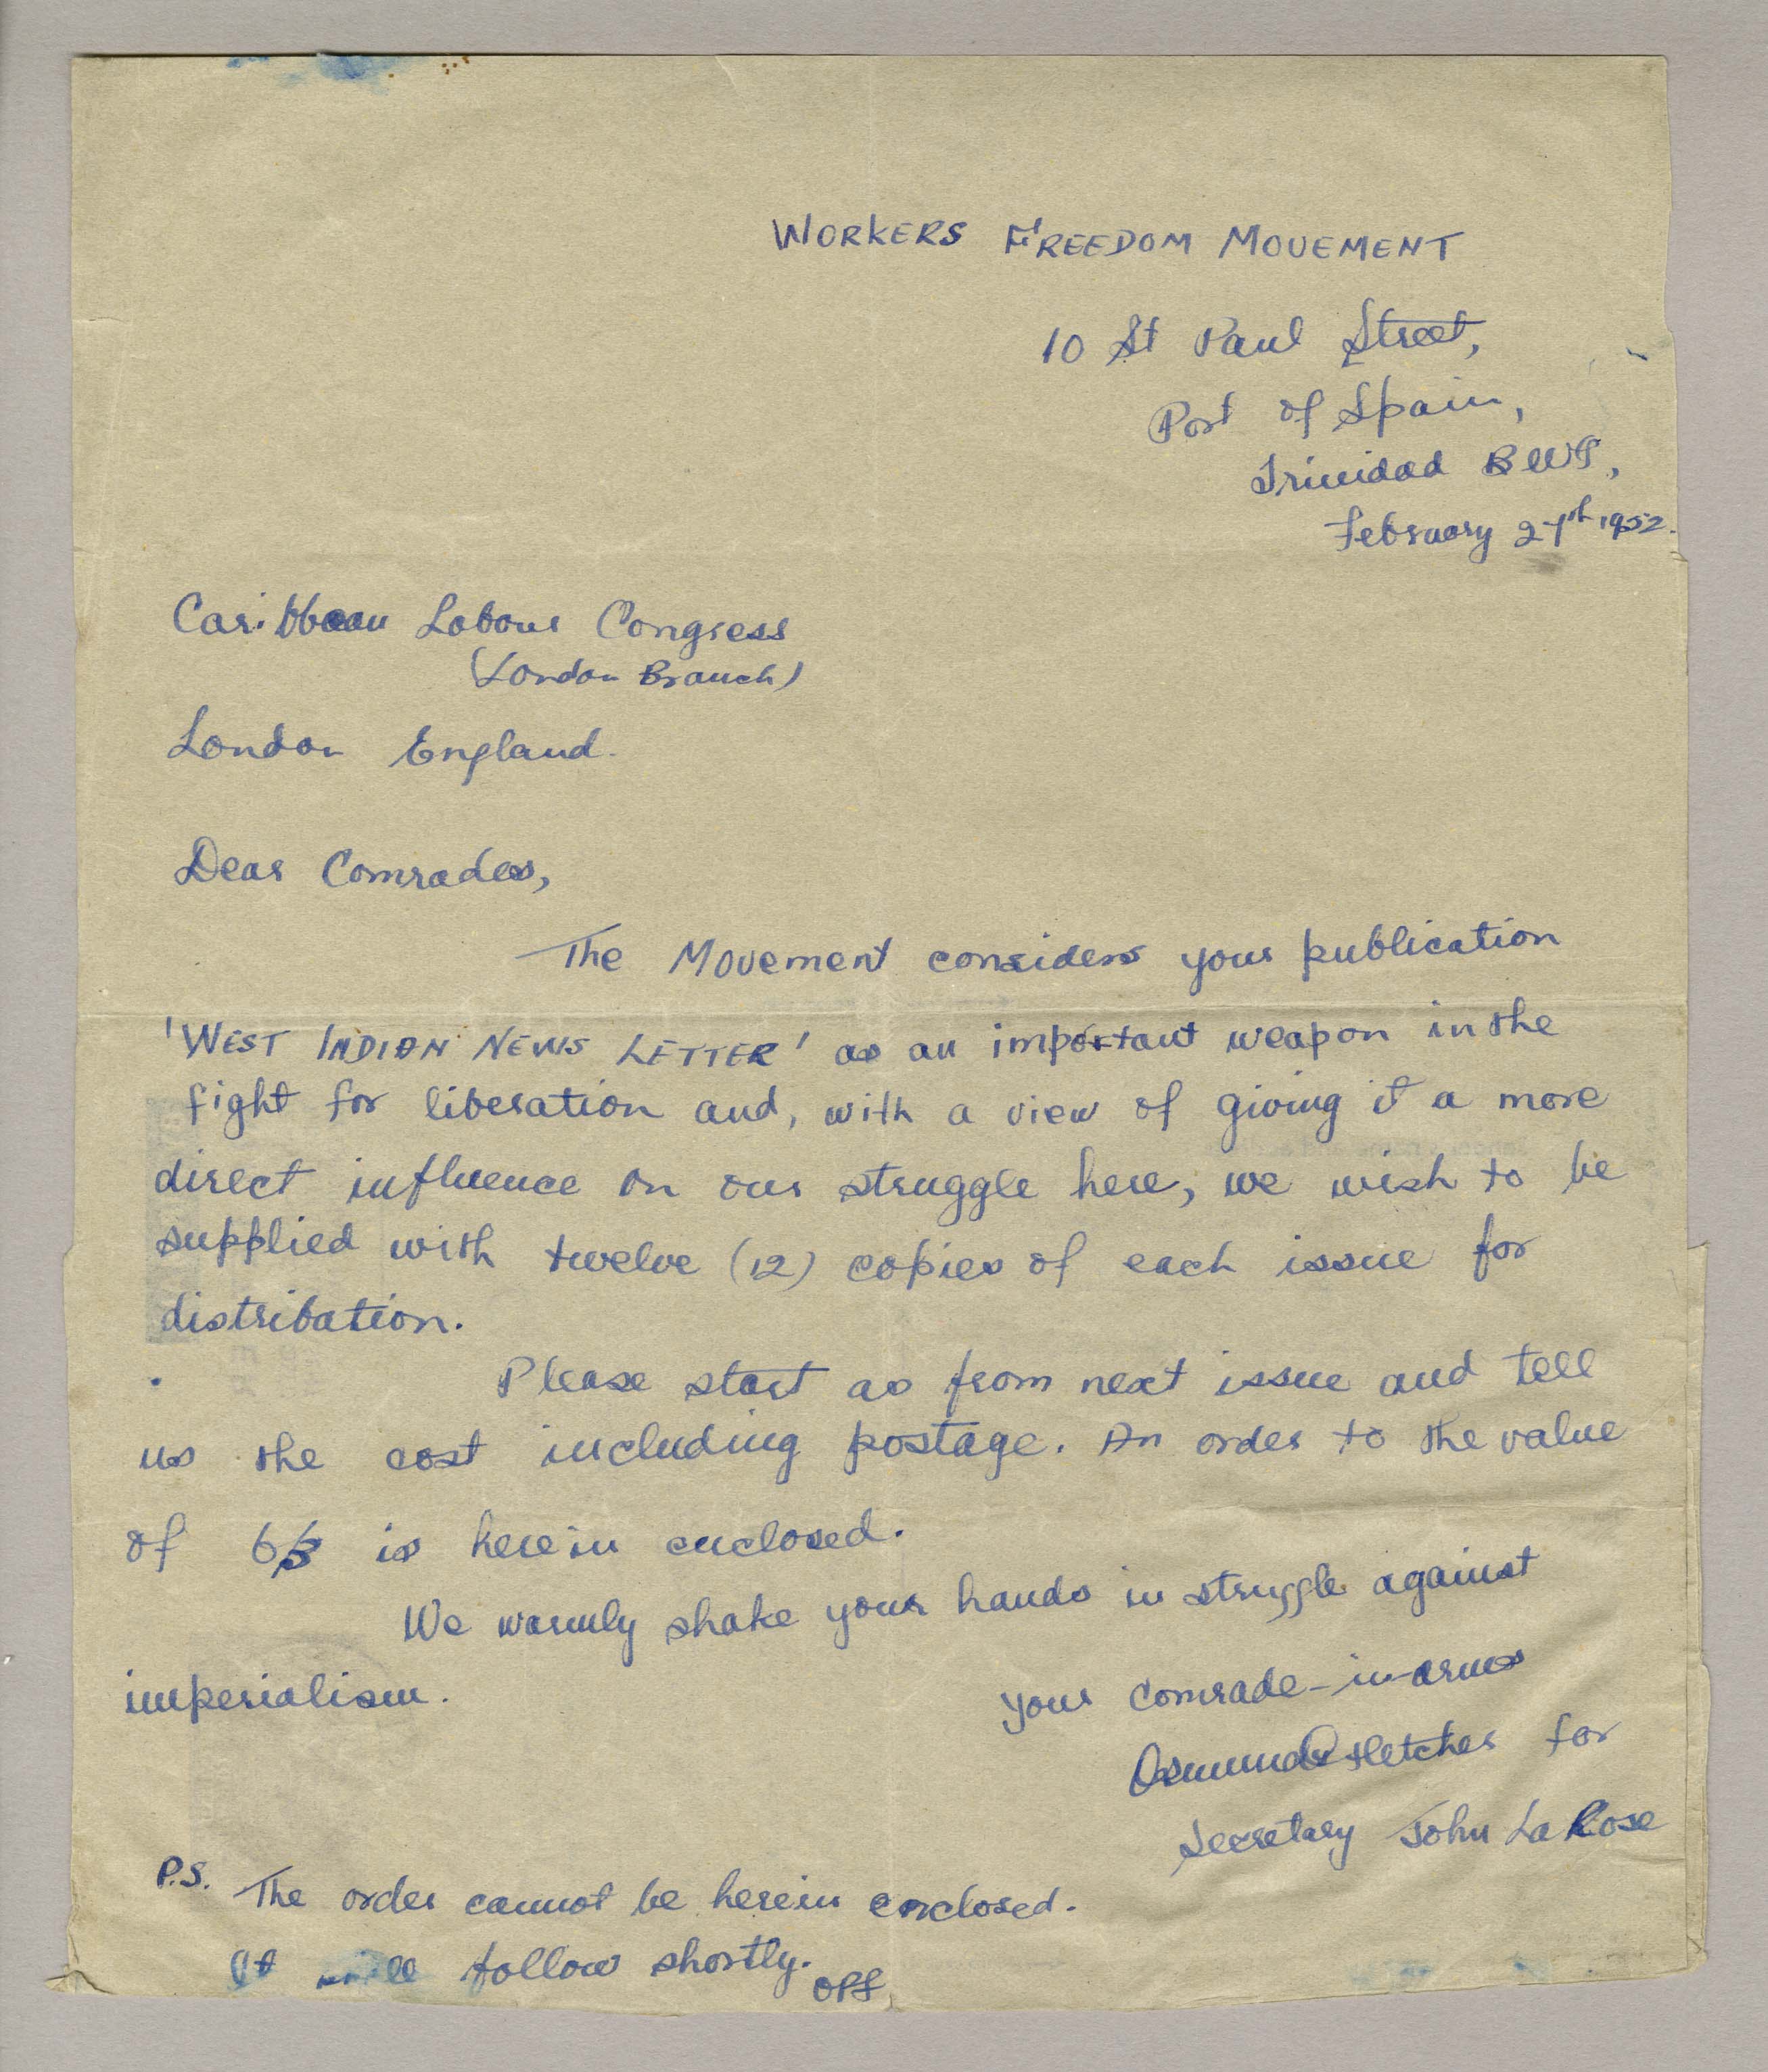 WORKERS FREEDOM MOVEMENT
10 St Paul Street,
Port of Spain,
Trinidad BWI,
February 27th 1952.
Caribbean Labour Congress
(London Branch)
London England.
Dear Comrades,
The Movement considers your publication
'WEST INDIAN NEWS LETTER' as an important weapon in the
fight for liberation and, with a view of giving it a more
direct influence on our struggle here, we wish to be
supplied with twelve (12) copies of each issue for
distribution.
Please start as from next issue and tell
us the cost including postage. An order to the value
of is herein enclosed.
We warmly shake your hands in struggle against
imperialism.
Your comrade-in-arms
Osmund Fletcher for
Secretary John La Rose
P.S. The order cannot be herein enclosed.
It will follow shortly.